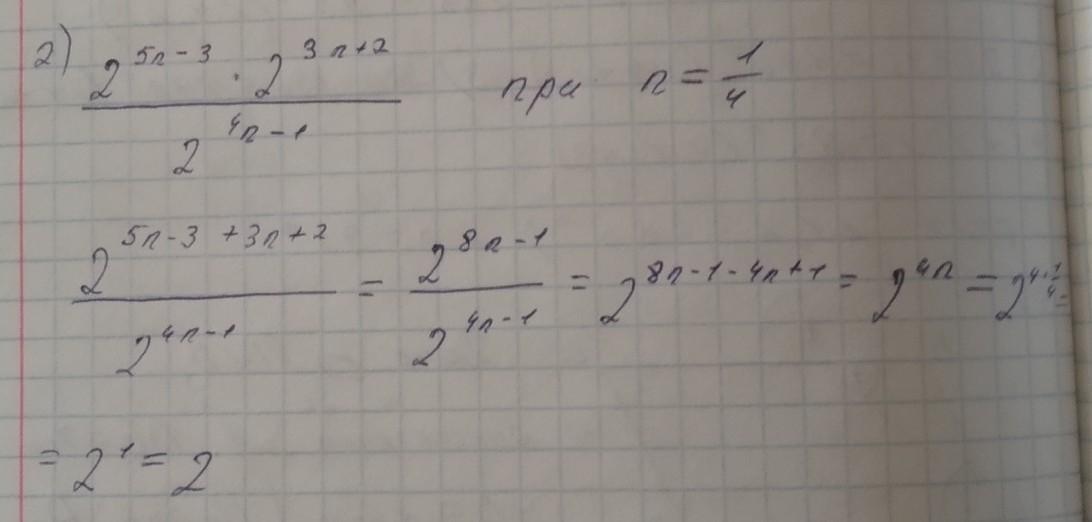 2) \frac{2^{5n-3} \cdot 2^{3n+2}}{2^{4n-1}} при n = \frac{1}{4}
\frac{2^{5n-3+3n+2}}{2^{4n-1}} = \frac{2^{8n-1}}{2^{4n-1}} = 2^{8n-1-4n+1} = 2^{4n} = 2^{4 \cdot \frac{1}{4}} =
= 2^1 = 2